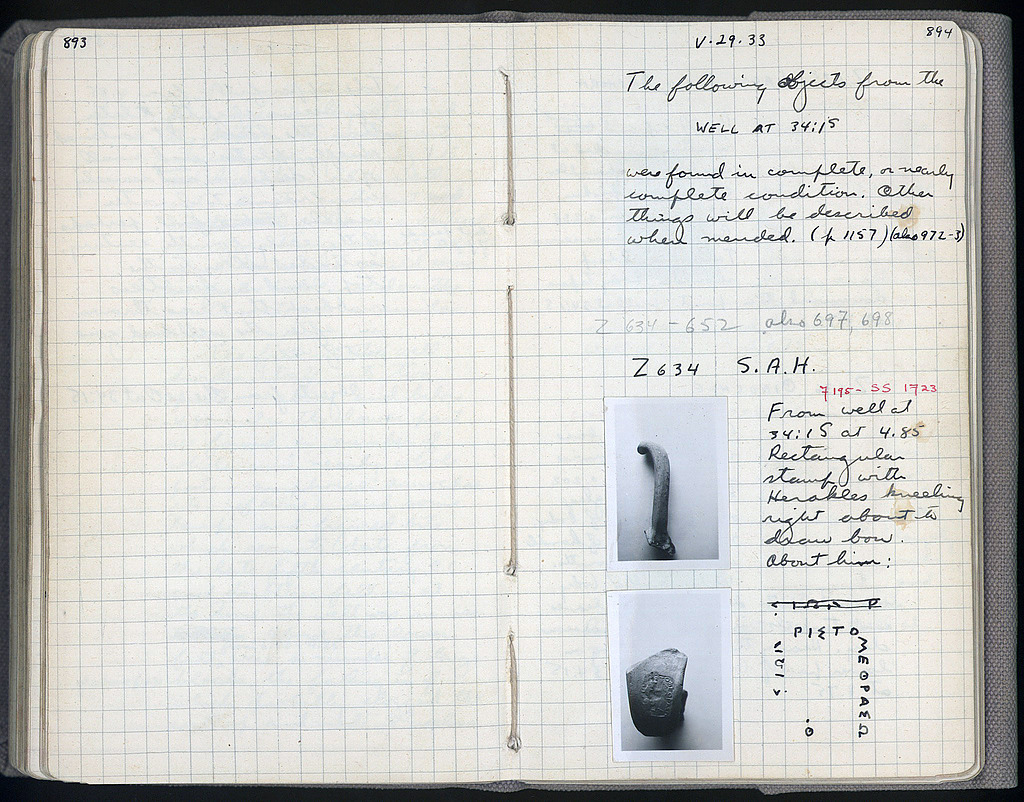 893
894
V.29.33
The following objects from the
WELL AT 34:15
were found in complete, or nearly
complete condition. Other
things will be described
when mended. (p 1157) (also 972-3)
Z 634 - 652 also 697, 698
Z 634 S.A.H.
7195 - SS 1723
From well at
34:15 at 4.85
Rectangular
stamp with
Herakles kneeling
right about to
draw bow.
About him:
ΡΙΣΤΟ
ΜΕΘΡΑΣΩ